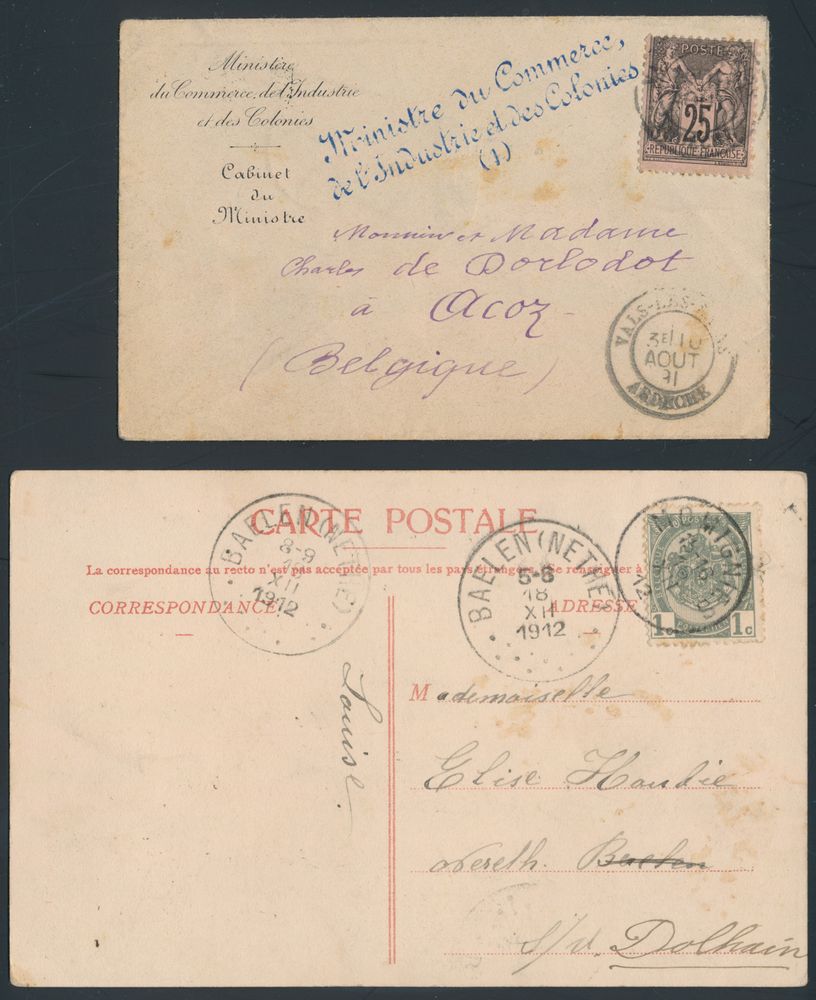 Ministère
du Commerce, de l'Industrie
et des Colonies
Cabinet
du
Ministre
Ministre du Commerce,
de l'Industrie et des Colonies
(1)
POSTE
25
REPUBLIQUE FRANÇAISE
Monsieur et Madame
Charles de Dorlodot
à Acoz
(Belgique)
VALS-LES-
3E 10
AOUT
91
ARDECHE
CARTE POSTALE
La correspondance au recto n'est pas acceptée par tous les pays étrangers. Se renseigner à
CORRESPONDANCE
ADRESSE
BAELEN (NETHE)
8-9
18
XII
1912
BAELEN (NETHE)
5-6
18
XII
1912
1c 1c
Louise.
Mademoiselle
Elise
Nereth. Baelen
s/d. Dolhain